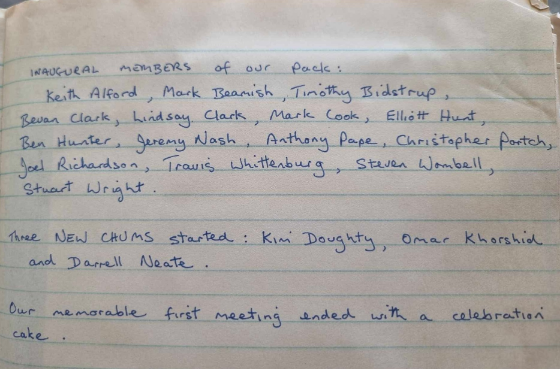 INAUGURAL MEMBERS of our Pack :
Keith Alford , Mark Beamish , Timothy Bidstrup ,
Bevan Clark , Lindsay Clark , Mark Cook , Elliott Hunt ,
Ben Hunter , Jeremy Nash , Anthony Pape , Christopher Portch ,
Joel Richardson , Travis Whittenburg , Steven Wombell ,
Stuart Wright .
Three NEW CHUMS started : Kim Doughty , Omar Khorshid
and Darrell Neate .
Our memorable first meeting ended with a celebration
cake .